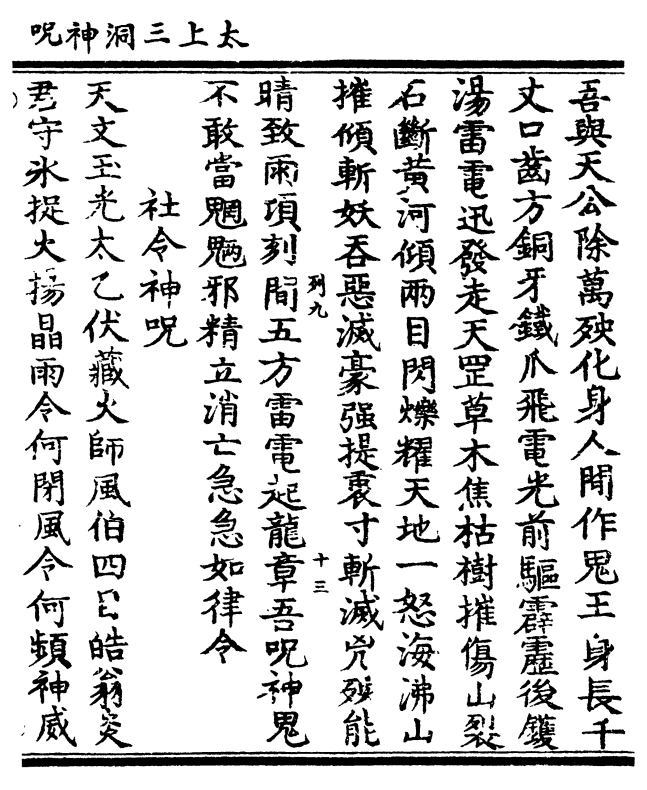 太上三洞神呪
吾與天公除萬殃化身人間作鬼王身長千
丈口齒方銅牙鐵爪飛電光前驅霹靂後鑊
湯雷電迅發走天罡草木焦枯樹摧傷山裂
石斷黃河傾兩目閃爍耀天地一怒海沸山
摧傾斬妖吞惡滅豪强提裏寸斬滅兇殃能
列九
十三
晴致雨項刻間五方雷電起龍章吾呪神鬼
不敢當魍魎邪精立消亡急急如律令
社令神呪
天文玉光太乙伏藏火師風伯四目皓翁炎
君守氷捉火揚晶雨令何閉風令何頻神威